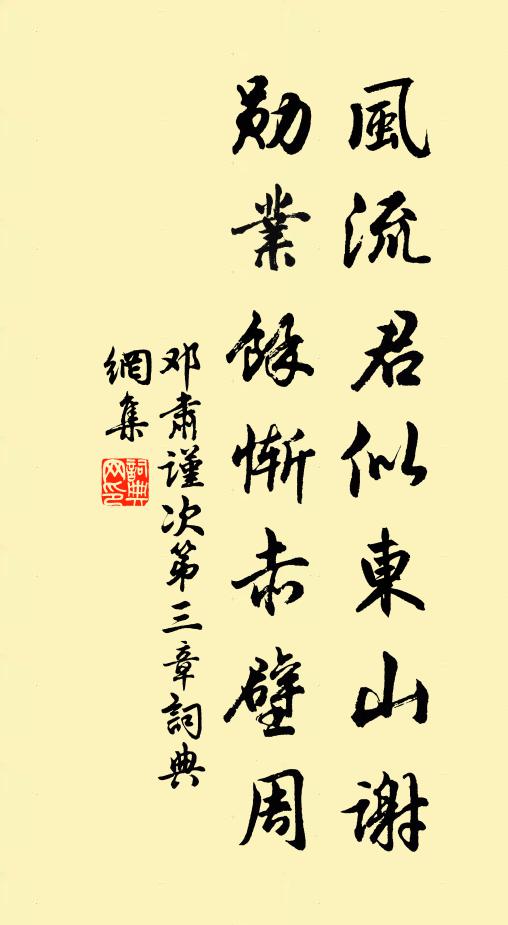 風流君似東山謝
勛業餘慚赤壁周
邓肅谨次第三章詞典
網集
詞典網印